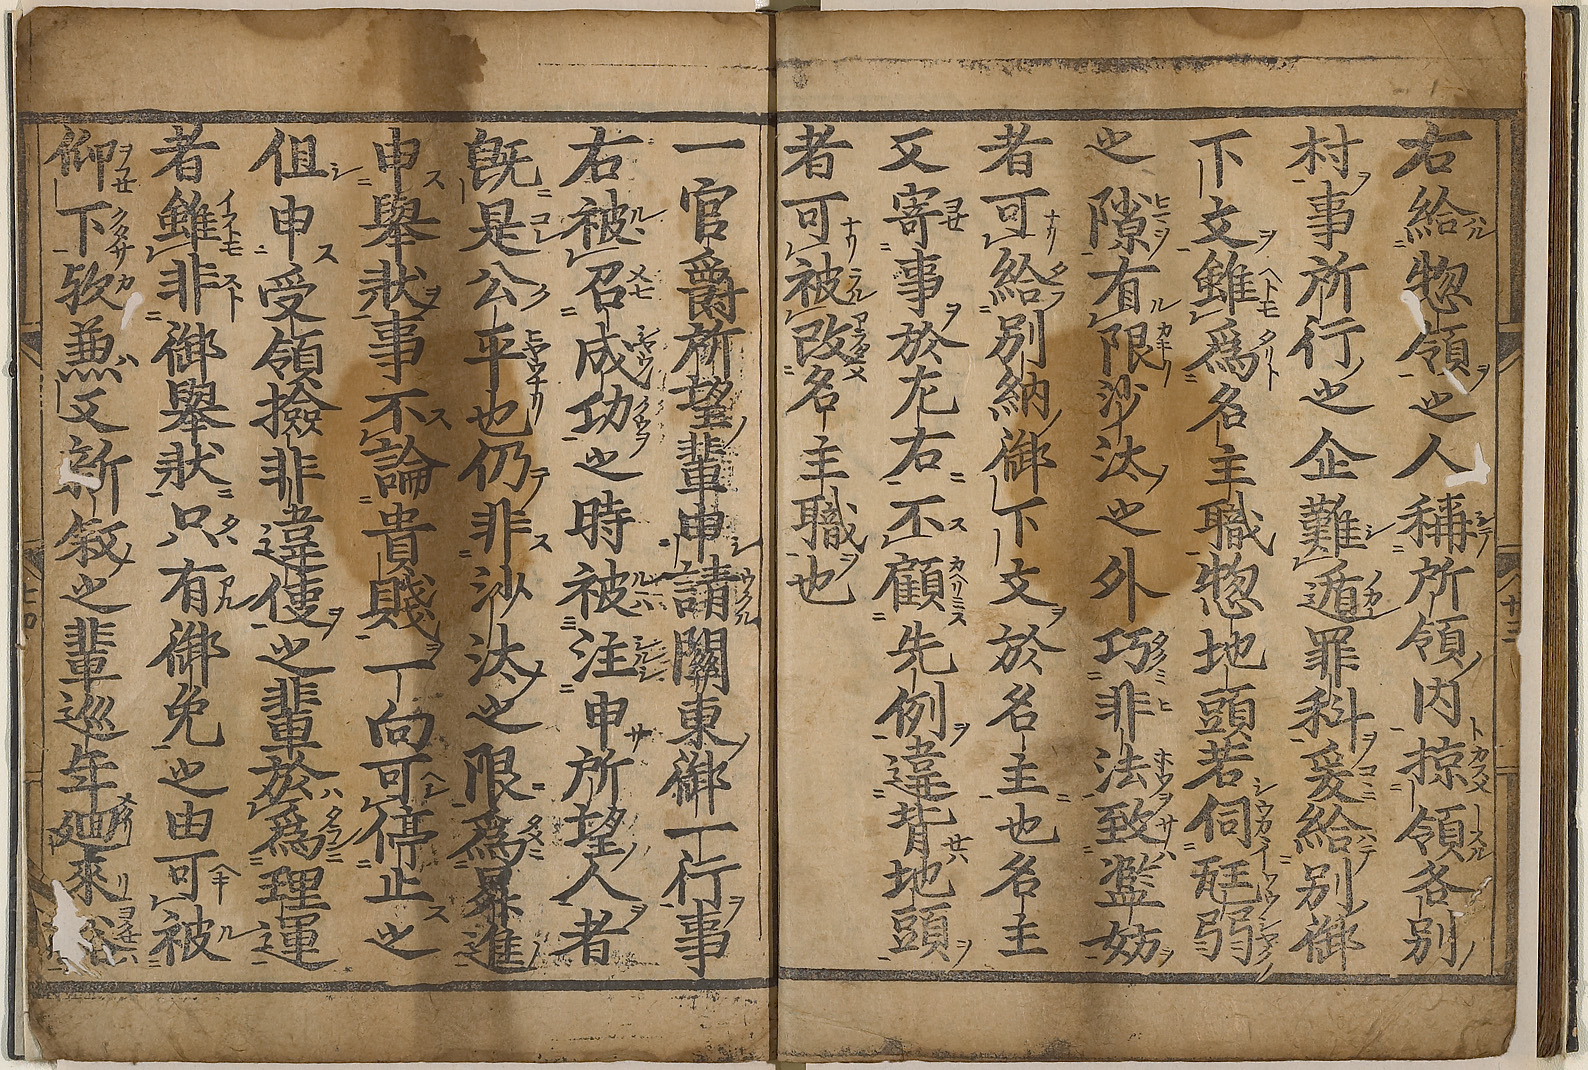 右給惣領之人稱所領内掠領各別
村事所行之企難遁罪科爰給別御
下文雖爲名主職惣地頭若伺尫弱
之隙有限沙汰之外巧非法致濫妨
者可給別納御下文於名主也名主
又寄事於左右不顧先例違背地頭
者可被改名主職也
一官爵所望輩申請關東御一行事
右被召成功之時被注申所望人者
既是公平也仍非沙汰之限爲昇進
申擧狀事不論貴賤一向可停止之
但申受領撿非違使之輩於爲理運
者雖非御擧狀只有御免之由可被
仰下歟兼又新叙之輩巡年廻來浴